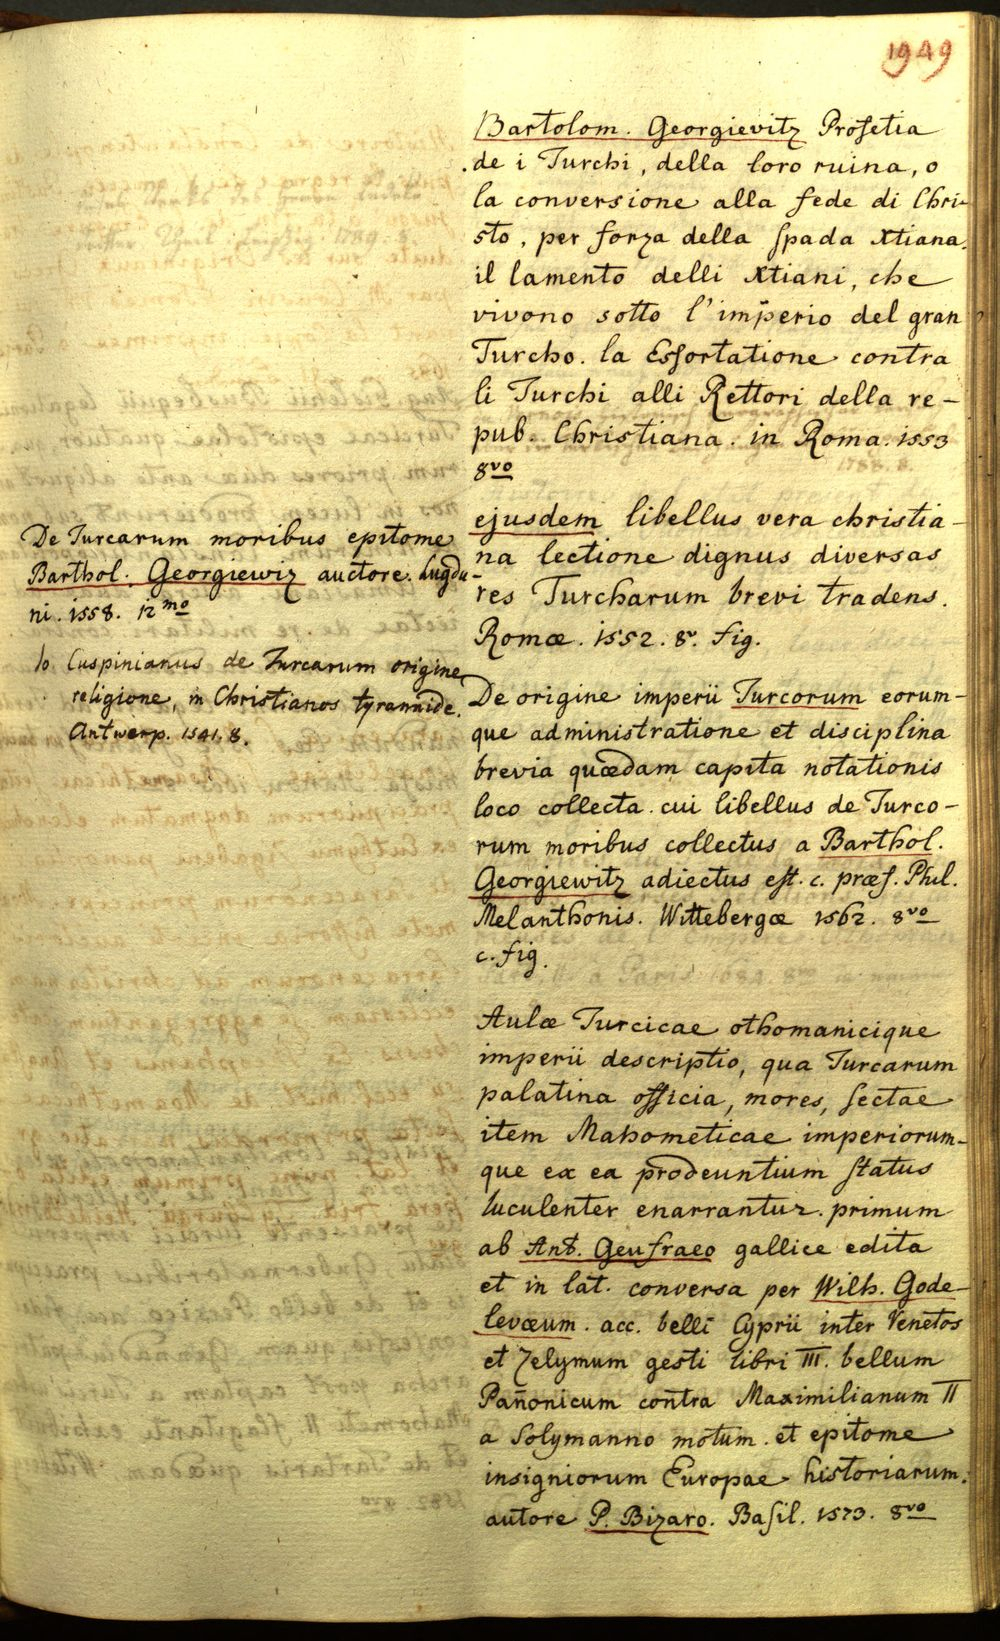 1949
Bartolom. Georgievitz Profetia
de i Turchi, della loro ruina, o
la conversione alla fede di Chri-
sto, per forza della spada Xtiana.
il lamento delli Xtiani, che
vivono sotto l'imperio del gran
Turcho. la Essortatione contra
li Turchi alli Rettori della re-
pub. Christiana. in Roma. 1553
8vo
ejusdem libellus vera christia-
na lectione dignus diversas
res Turcharum brevi tradens.
Romæ. 1552. 8. fig.
De origine imperii Turcorum eorum-
que administratione et disciplina
brevia quædam capita notationis
loco collecta. cui libellus de Turco-
rum moribus collectus a Barthol.
Georgiewitz adiectus est. c. præf. Phil.
Melanthonis. Wittebergæ 1562. 8vo
c. fig.
Aulæ Turcicae othomanicique
imperii descriptio, qua Turcarum
palatina officia, mores, sectae
item Mahometicae imperiorum-
que ex ea prodeuntium status
luculenter enarrantur. primum
ab Ant. Geufraeo gallice edita
et in lat. conversa per Wilh. Gode-
levæum. acc. belli Cyprii inter Venetos
et Zelymum gesti libri III. bellum
Pañonicum contra Maximilianum II
a Solymanno motum. et epitome
insigniorum Europae historiarum.
autore P. Bizaro. Basil. 1573. 8vo
De Turcarum moribus epitome
Barthol. Georgiewiz auctore. Lugdu-
ni. 1558. 12mo
Jo. Cuspinianus de Turcarum origine
religione, in Christianos tyrannide.
Antwerp. 1541. 8.